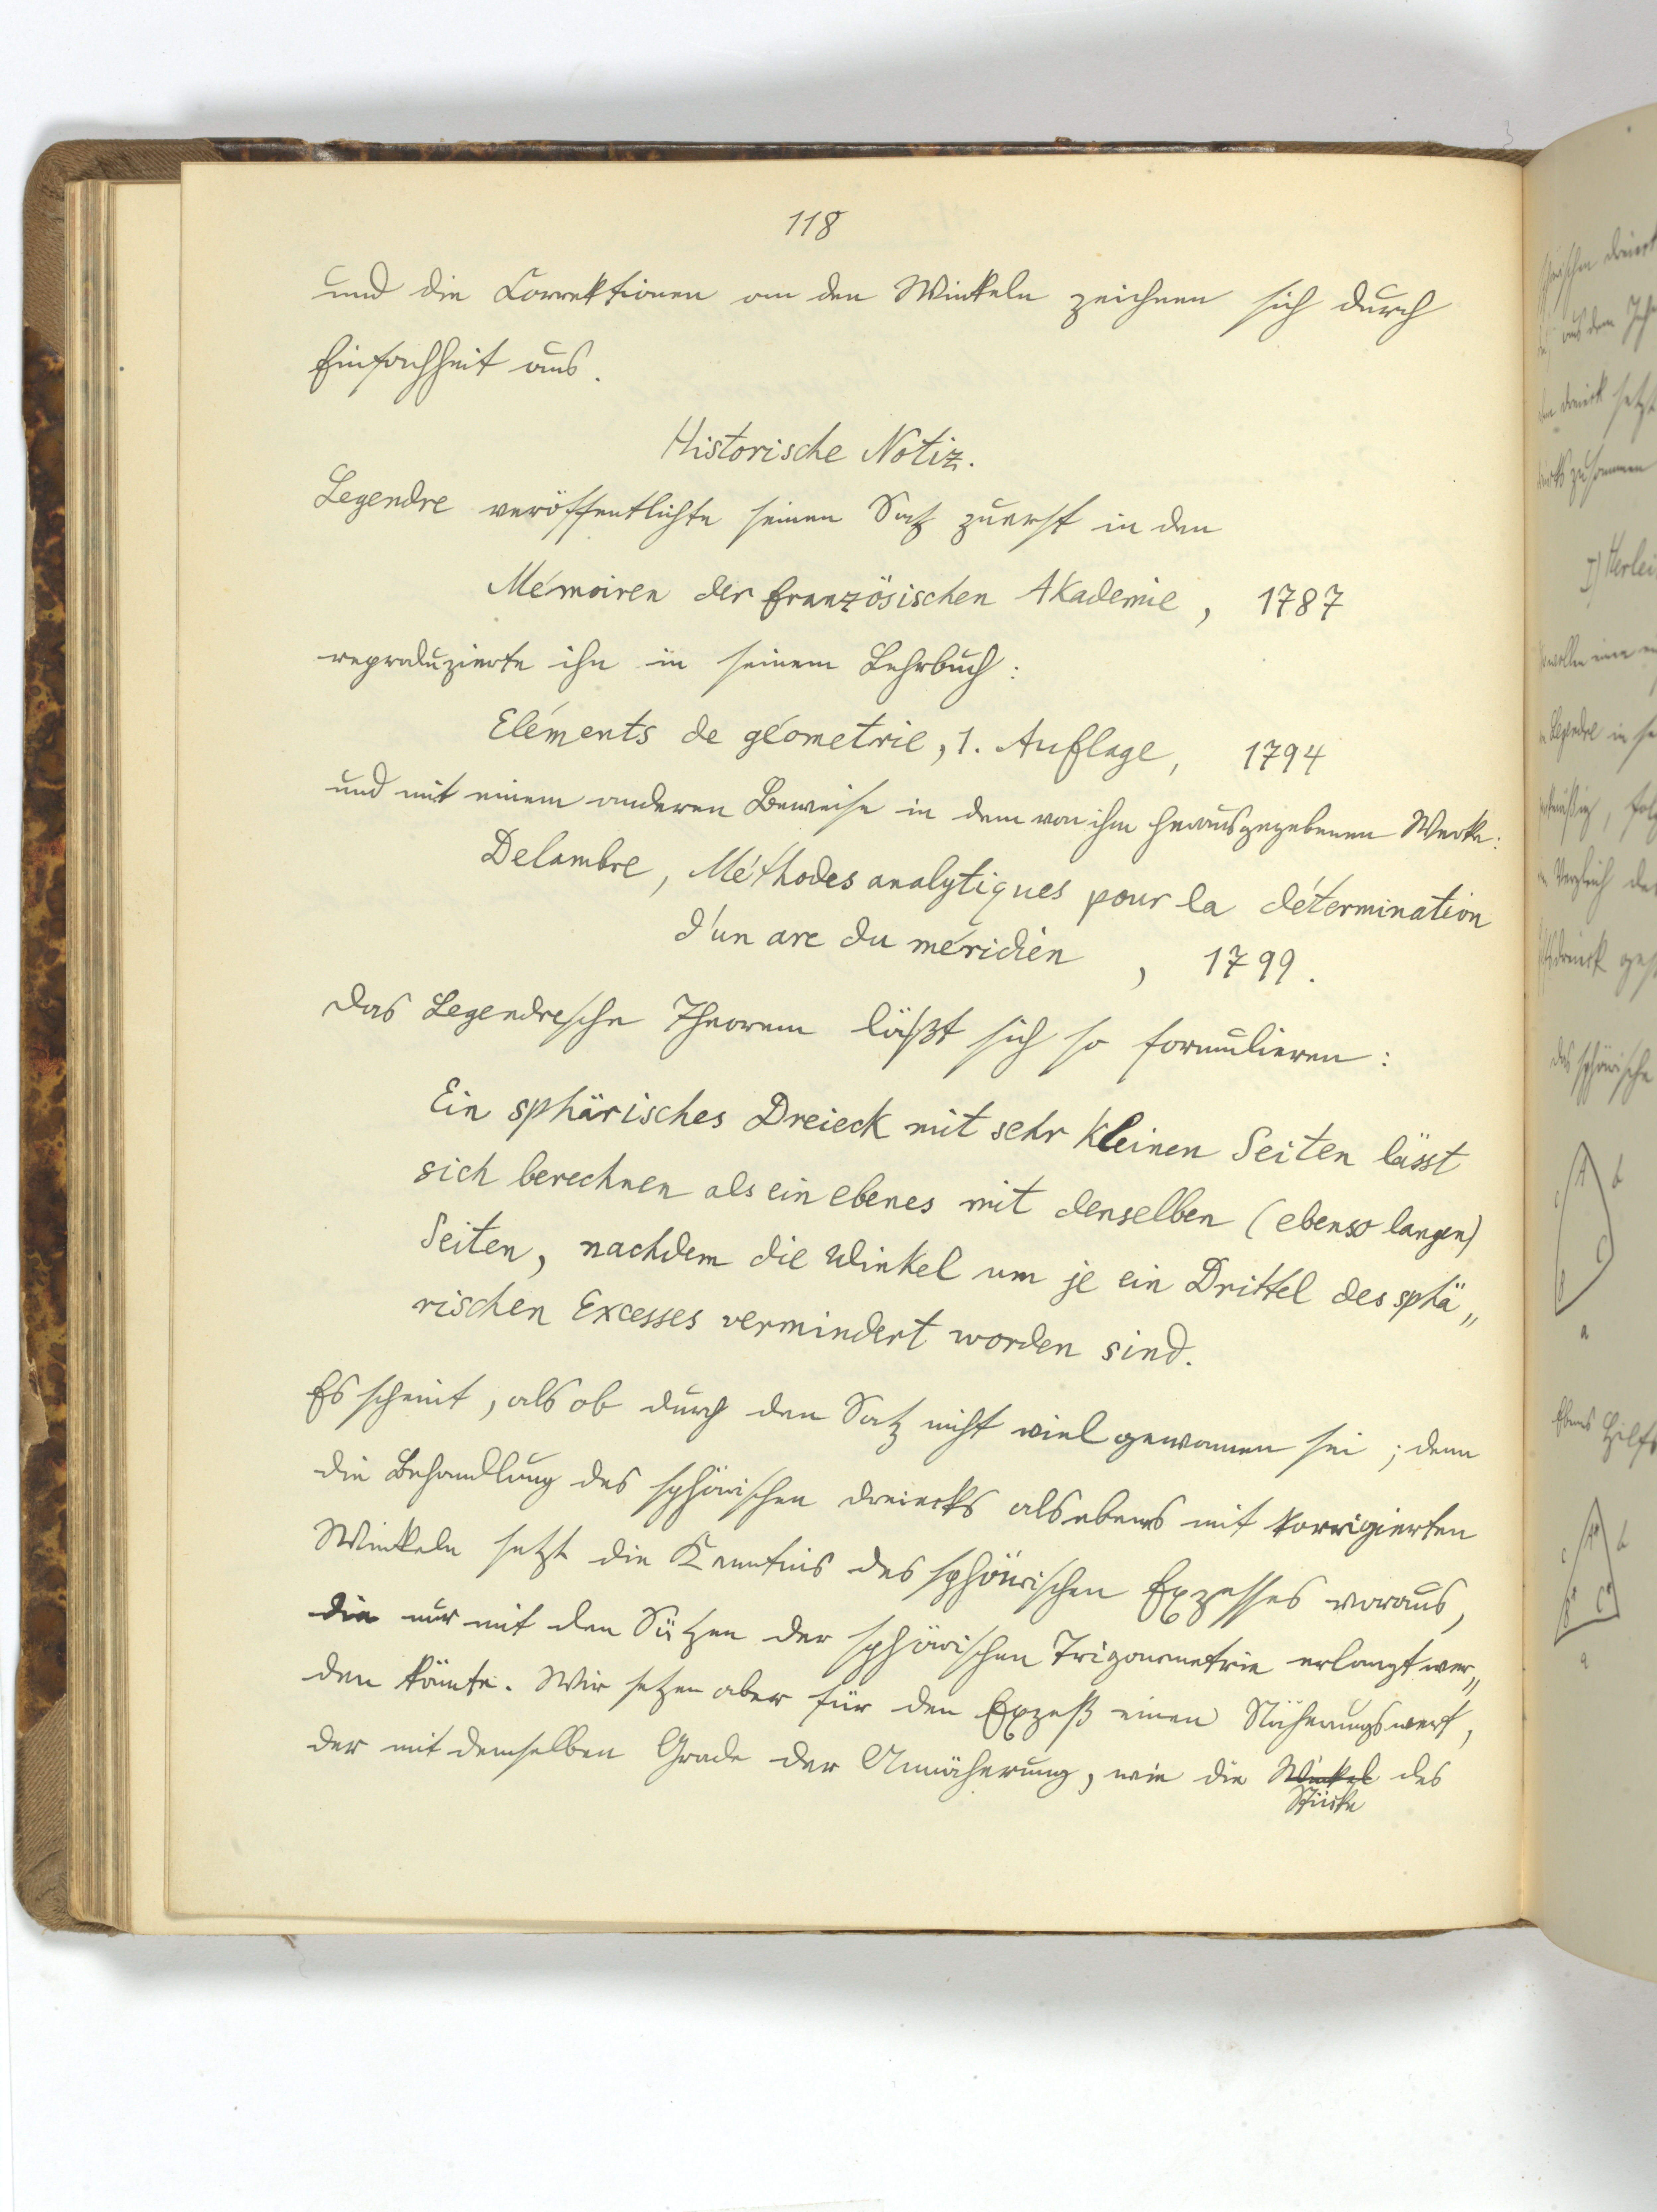 118
und die Correktionen an den Winkeln zeichnen sich durch
Einfachheit aus.
Historische Notiz.
Legendre veröffentlichte seinen Satz zuerst in den
Mémoiren der französischen Akademie, 1787
reproduzierte ihn in seinem Lehrbuch:
Eléments de géometrie, 1. Auflage, 1794
und mit einem anderen Beweise in dem von ihm herausgegebenen Werke:
Delambre, Méthodes analytiques pour la détermination
d'un arc du méridien, 1799.
Das Legendresche Theorem läßt sich so formulieren:
Ein sphärisches Dreieck mit sehr kleinen Seiten lässt
sich berechnen als ein ebenes mit denselben (ebenso langen)
Seiten, nachdem die Winkel um je ein Drittel des sphä„
rischen Excesses vermindert worden sind.
Es scheint, als ob durch den Satz nicht viel gewonnen sei; denn
die Behandlung des sphärischen Dreiecks als ebenes mit korrigierten
Winkeln setzt die Kenntnis des sphärischen Exzesses voraus,
die nur mit den Sätzen der sphärischen Trigonometrie erlangt wer„
den könnte. Wir setzen aber für den Exzeß einen Näherungswert,
der mit demselben Grade der Annäherung, wie die Winkel des
Stücke
sphärischen Dreieck
aus dem
Dreieck setzt
zusammen
I) Herlei
wollen nun
Legendre in
, folg
Vergleich der
das sphärische
A b
c
C
B
a
Ebenes Hilfs
c A* b
B* C*
a